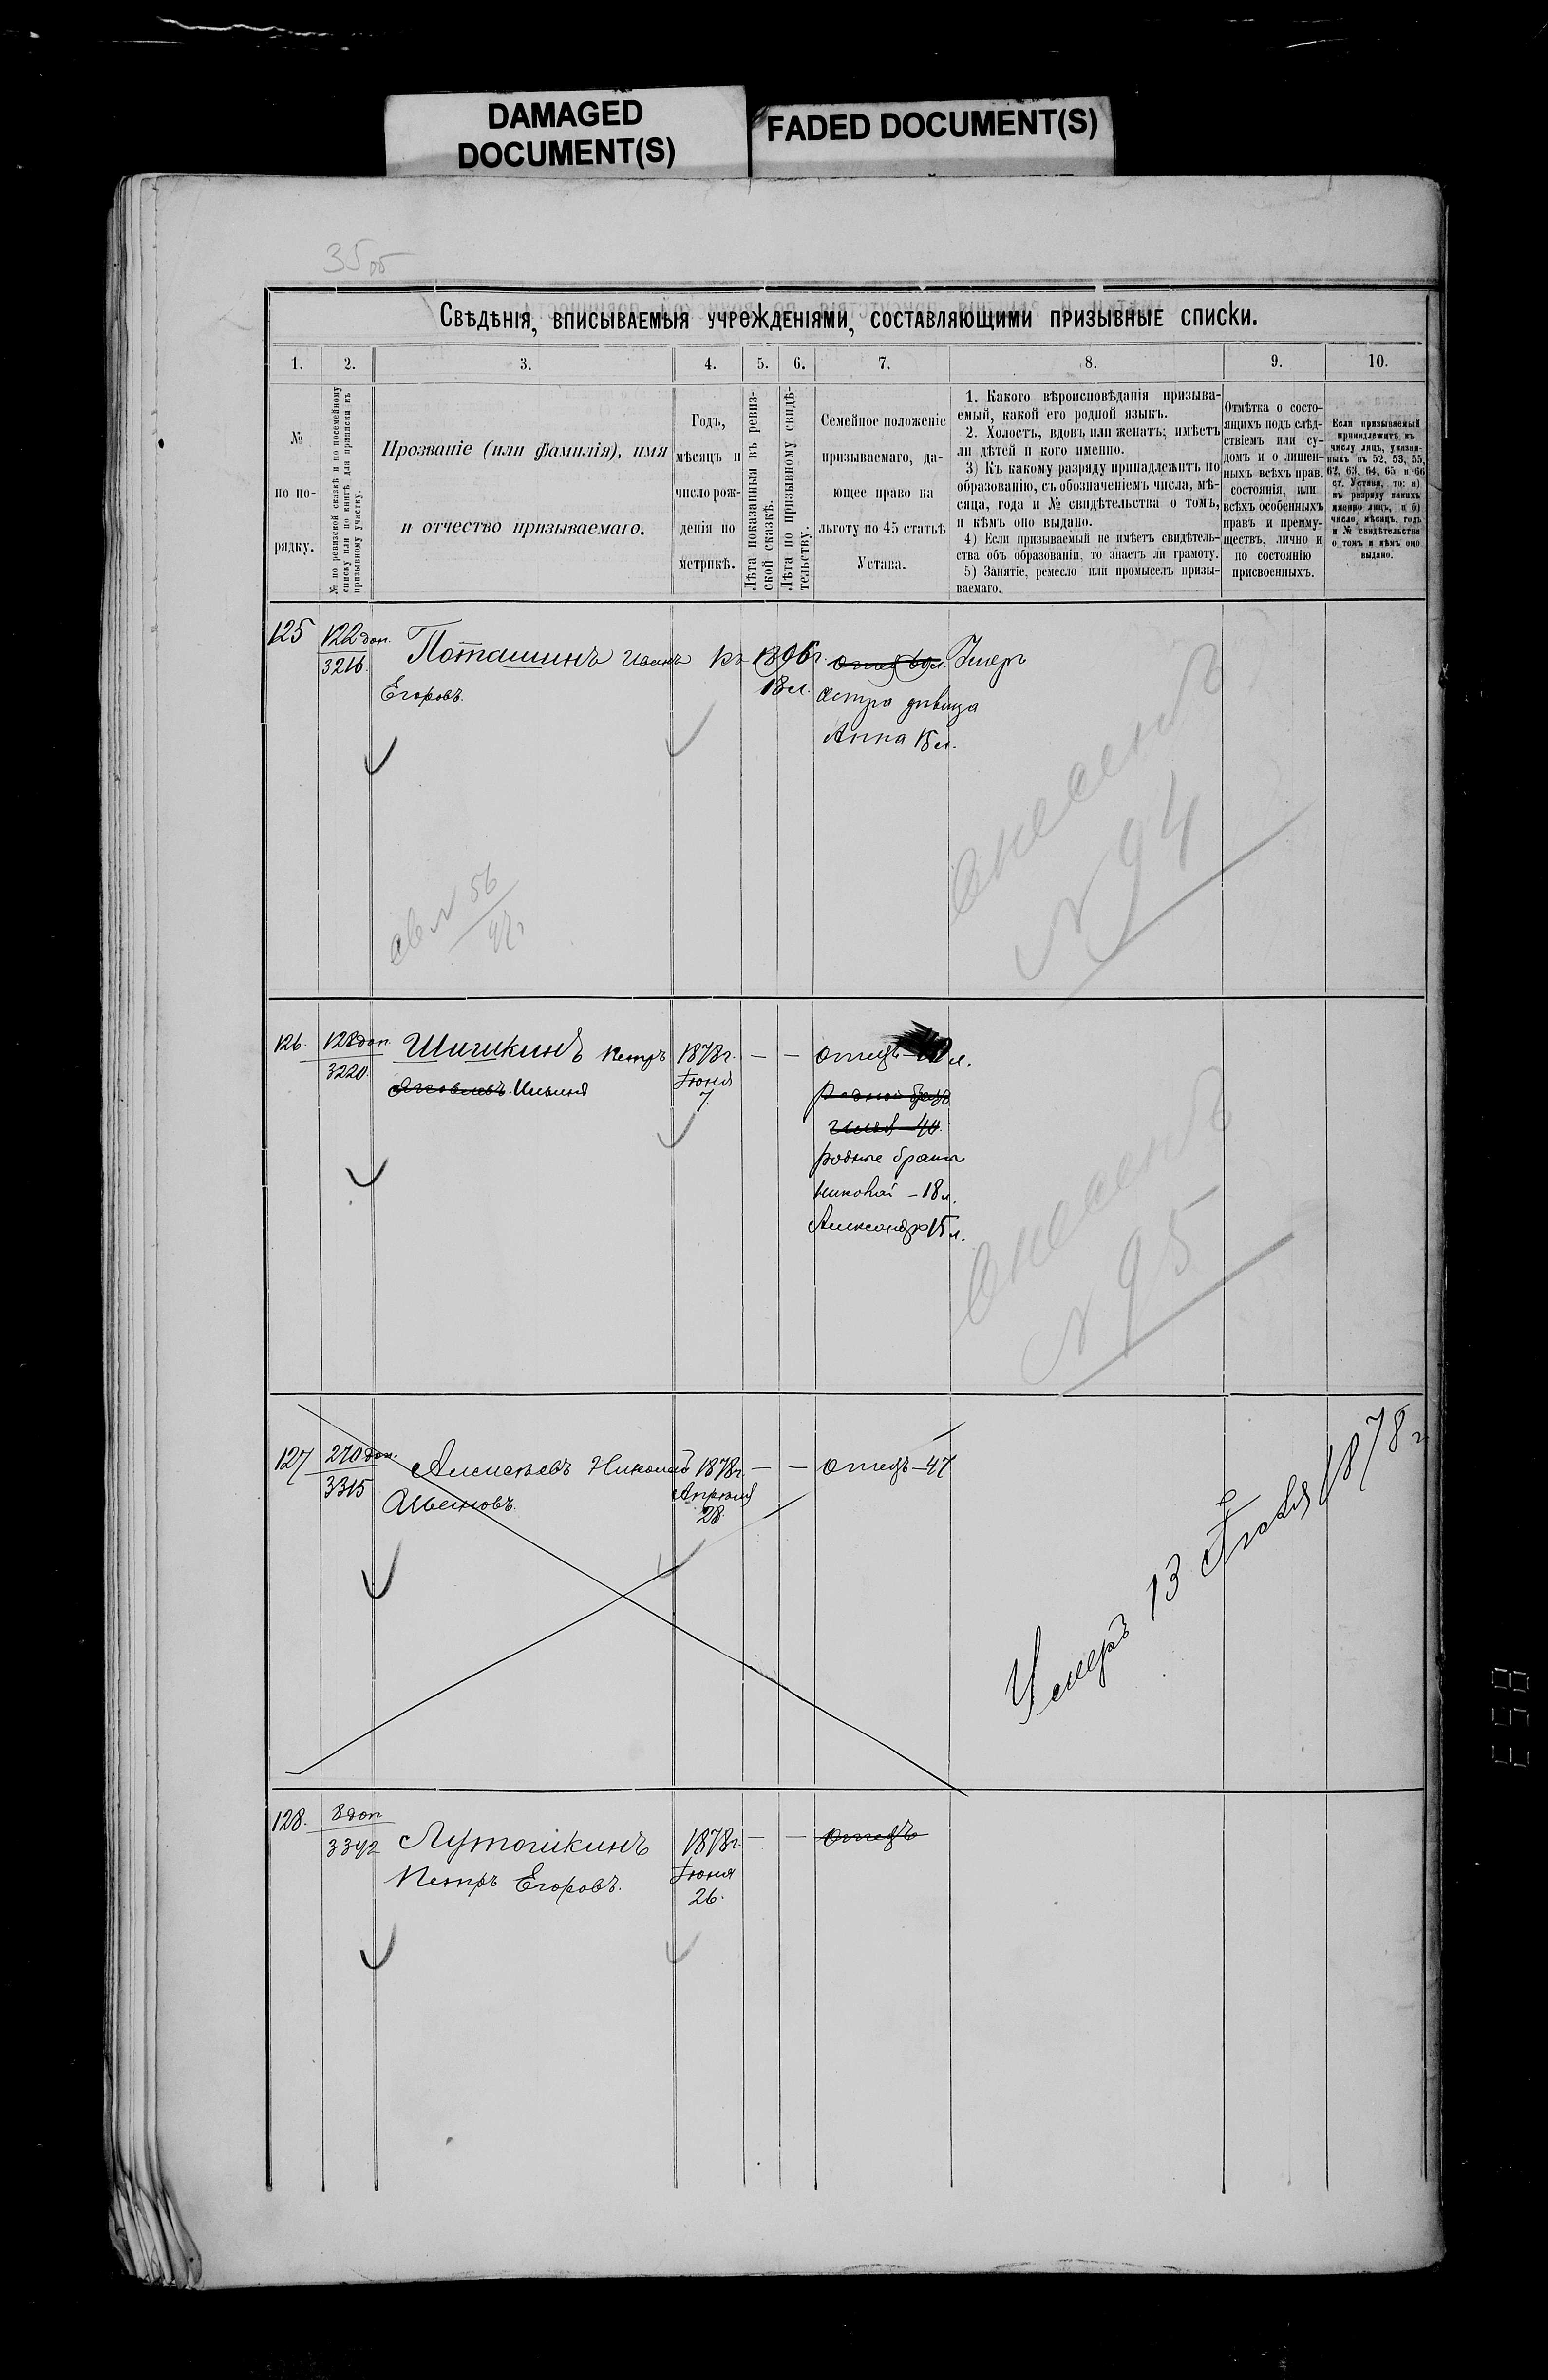 DAMAGED
DOCUMENT(S)
FADED DOCUMENT(S)
35об
Свѣдѣнія, вписываемыя учрежденіями, составляющими призывные списки.
1. 2. 3. 4. 5. 6. 7. 8. 9. 10.
№
по по-
рядку.
№ по ревизской сказкѣ и по посемейному
списку или по книгѣ для приписки къ
призывному участку.
Прозваніе (или фамилія), имя
и отчество призываемаго.
Годъ,
мѣсяцъ и
число рож-
денія по
метрикѣ.
Лѣта показанныя въ ревиз-
ской сказкѣ.
Лѣта по призывному свидѣ-
тельству.
Семейное положеніе
призываемаго, да-
ющее право на
льготу по 45 статьѣ
Устава.
1. Какого вѣроисповѣданія призыва-
емый, какой его родной языкъ.
2. Холостъ, вдовъ или женатъ; имѣетъ
ли дѣтей и кого именно.
3) Къ какому разряду принадлежитъ по
образованію, съ обозначеніемъ числа, мѣ-
сяца, года и № свидѣтельства о томъ,
и кѣмъ оно выдано.
4) Если призываемый не имѣетъ свидѣтель-
ства объ образованіи, то знаетъ ли грамоту.
5) Занятіе, ремесло или промыселъ призы-
ваемаго.
Отмѣтка о состо-
ящихъ подъ слѣд-
ствіемъ или су-
домъ и о лишен-
ныхъ всѣхъ прав.
состоянія, или
всѣхъ особенныхъ
правъ и преиму-
ществъ, лично и
по состоянію
присвоенныхъ.
Если призываемый
принадлежитъ къ
числу лицъ, указан-
ныхъ въ 52, 53, 55,
62, 63, 64, 65 и 66
ст. Устава, то: а)
къ разряду какихъ
именно лицъ, и б)
число, мѣсяцъ, годъ
и № свидѣтельства
о томъ и кѣмъ оно
выдано.
125 122 доп. Поташинъ Иванъ Въ 1896г. отец 60л. Умеръ
3216. Егоровъ. 18 л. сестра дѣвица
Анна 15 л.
внесенъ
№ 94
св № 56
97г
126. 128 доп. Шишкинъ Петръ 1878г. — — отецъ — л.
3220. Яковлевъ. Ильинъ Іюня
7.
родные братья
Николай — 18 л.
Александръ 15 л.
внесенъ
№ 95
127 270 доп. Алексѣевъ Николай 1878г. — — отецъ — 47
3315 Ивановъ. Апрѣля
28.
Умеръ 13 Іюля 1878 г
128. 8 доп Лутошкинъ 1878г. — — отецъ
3392 Петръ Егоровъ. Іюня
26.
853